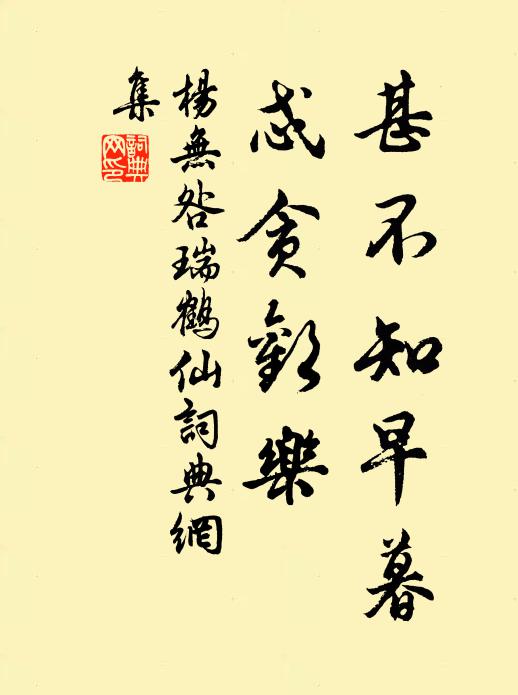 甚不知早暮
忒貪歡樂
楊無咎瑞鶴仙詞典網
集
詞典網印